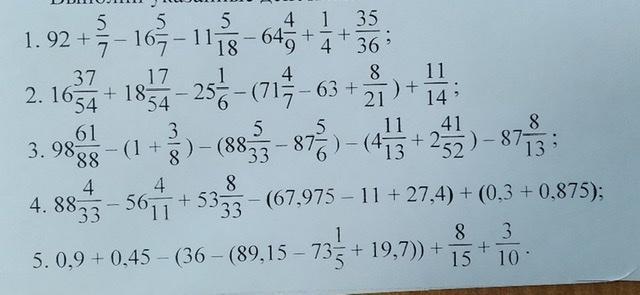 1. 92 + 5/7 − 16 5/7 − 11 5/18 − 64 4/9 + 1/4 + 35/36;
2. 16 37/54 + 18 17/54 − 25 1/6 − (71 4/7 − 63 + 8/21) + 11/14;
3. 98 61/88 − (1 + 3/8) − (88 5/33 − 87 5/6) − (4 11/13 + 2 41/52) − 87 8/13;
4. 88 4/33 − 56 4/11 + 53 8/33 − (67,975 − 11 + 27,4) + (0,3 + 0,875);
5. 0,9 + 0,45 − (36 − (89,15 − 73 1/5 + 19,7)) + 8/15 + 3/10.